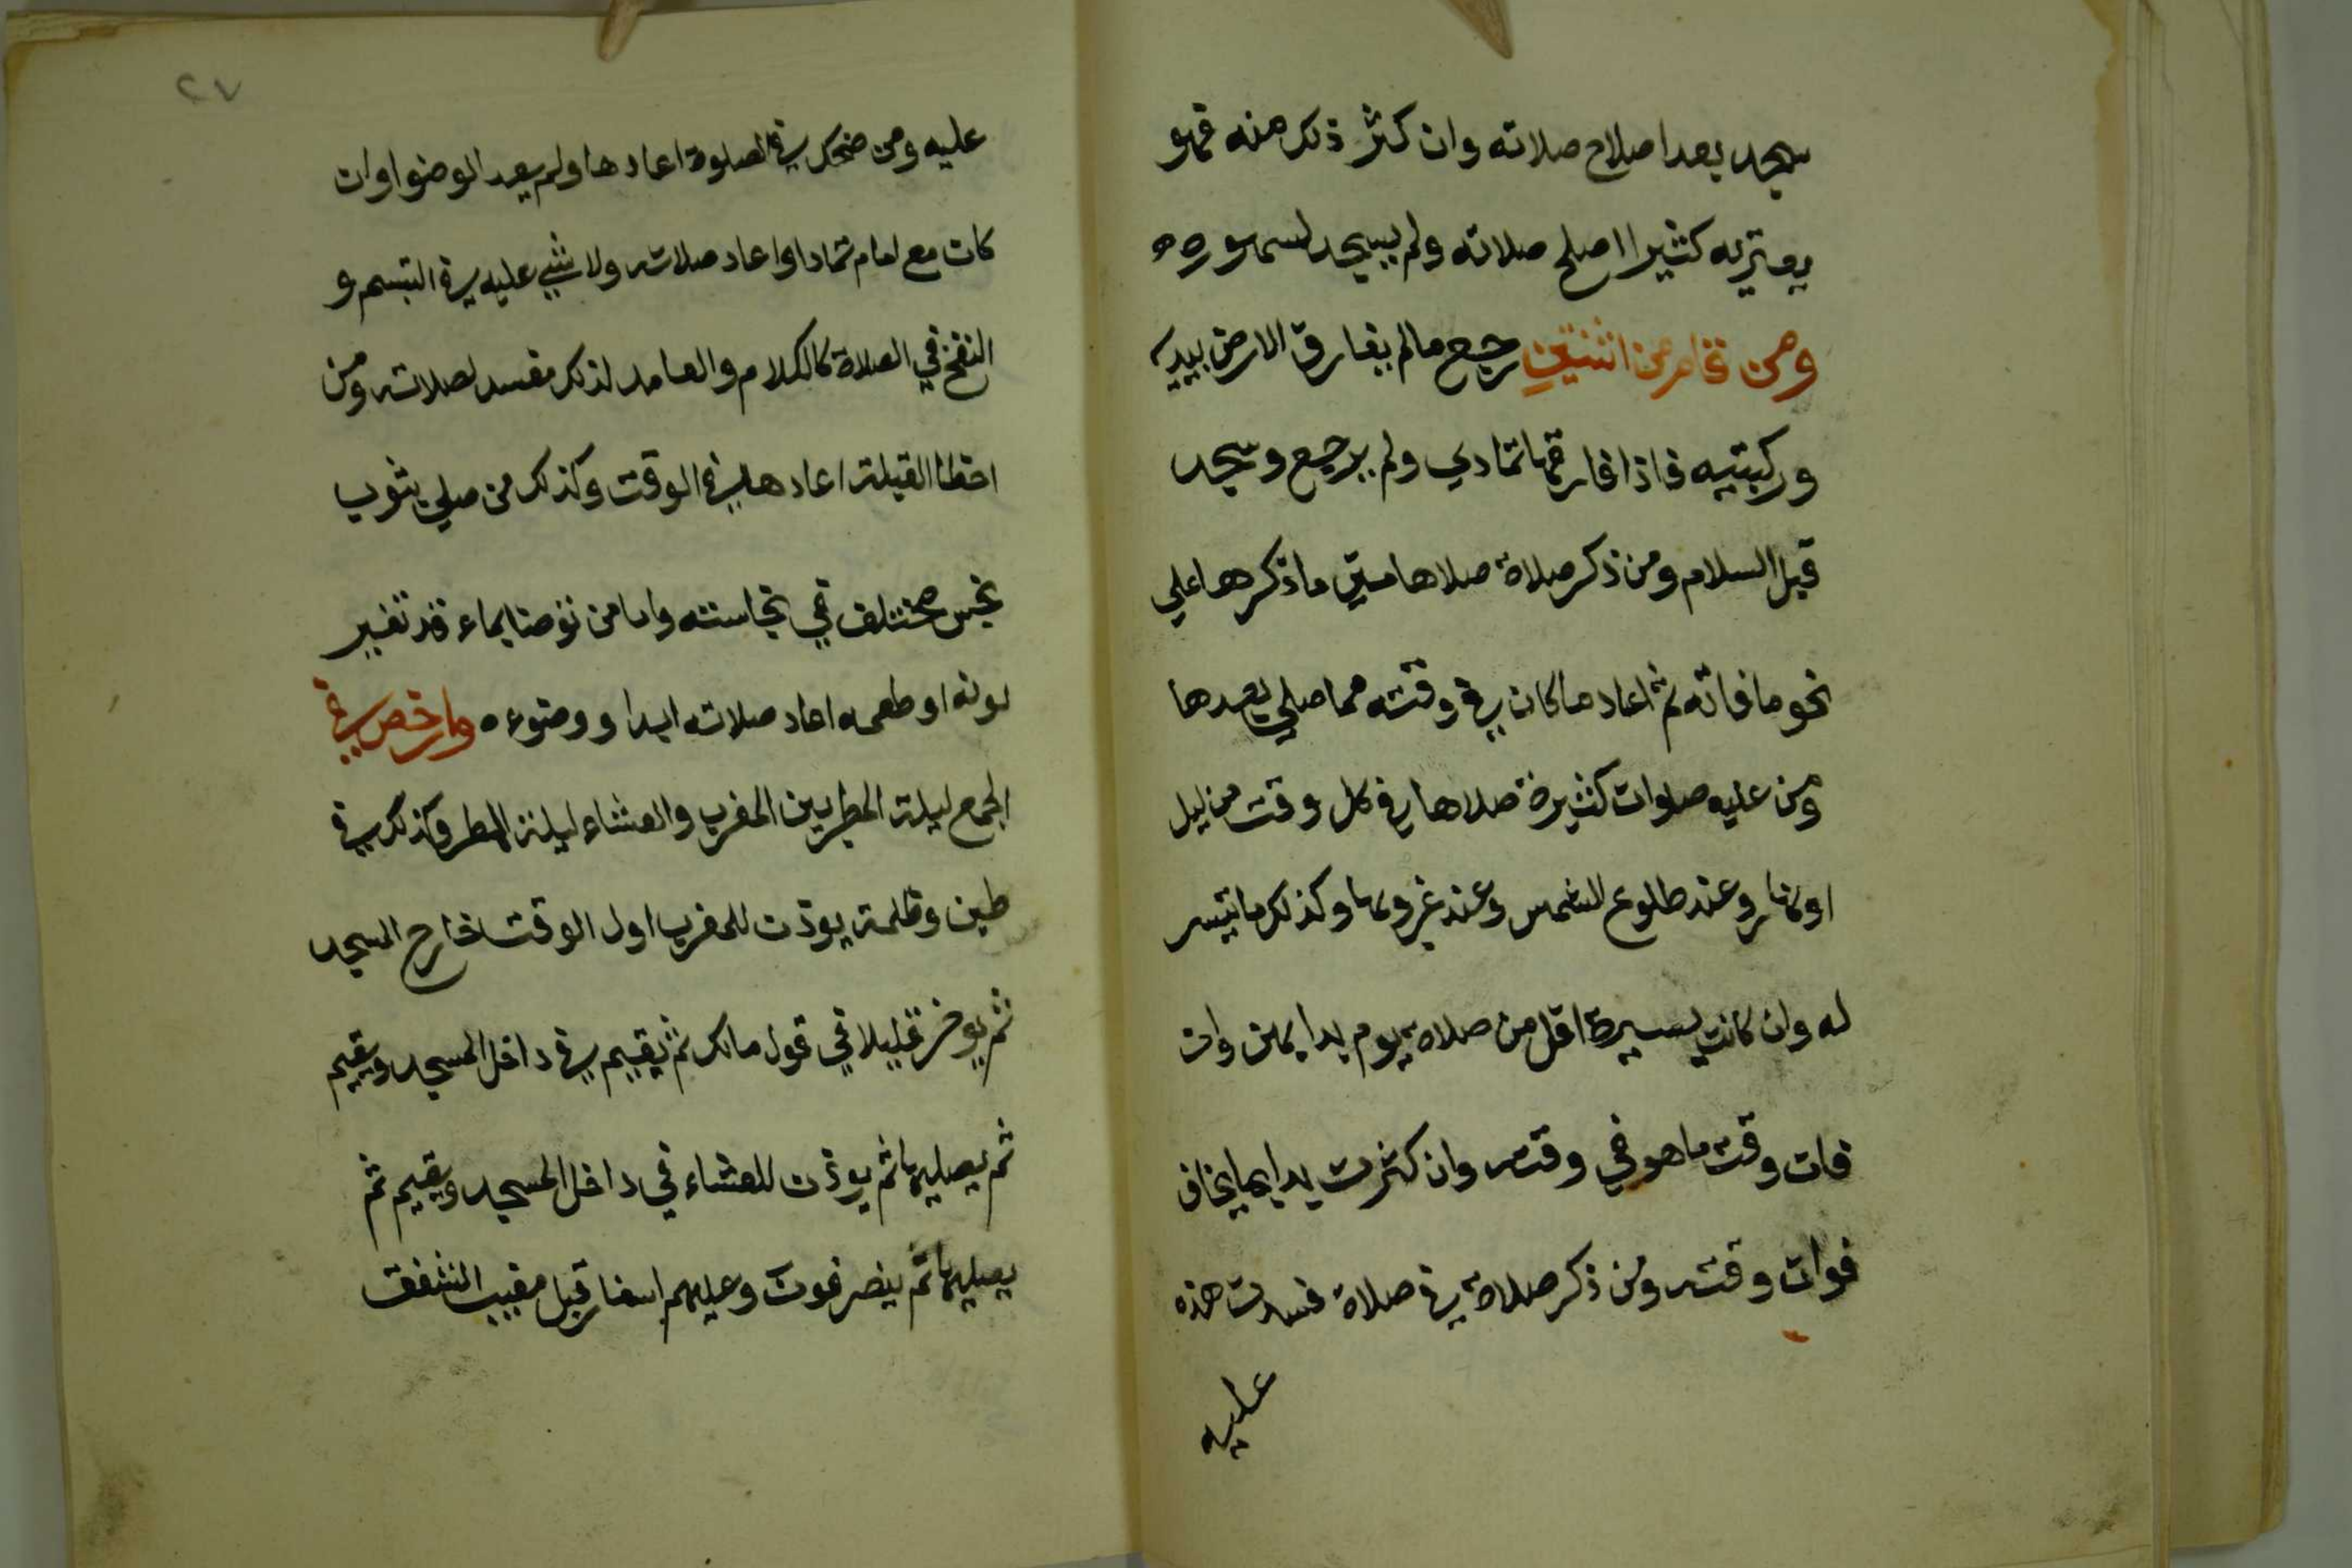 سجد بعد اصلاح صلاته وان كثر ذلك منه فهو
يعتريه كثيرا اصلح صلاته ولم يسجد لسهوه ه
ومن قام من اثنتين رجع مالم يفارق الارض بيديه
وركبتيه فاذا فارقها تمادي ولم يرجع وسجد
قبل السلام ومن ذكر صلاة صلاها متي ما ذكرها علي
نحو ما فاته ثم اعاد ما كان في وقته مما صلي بعدها
ومن عليه صلوات كثيرة صلاها في كل وقت من ليل
او نهار وعند طلوع الشمس وعند غروبها وكذلك ما تيسر
له وان كانت يسيرة اقل من صلاة يوم بدا بهن وان
فات وقت ما هو في وقته وان كثرت بدا بما يخاف
فوات وقته ومن ذكر صلاة في صلاة فسدت هذه
عليه
٢٧
عليه ومن ضحك في الصلوة اعادها ولم يعد الوضوا وان
كان مع امام تمادا واعاد صلاته ولا شي عليه في التبسم و
النفخ في الصلاة كالكلام والعامد لذلك مفسد لصلاته ومن
اخطا القبلة اعادها في الوقت وكذلك من صلي بثوب
نجس مختلف في نجاسته واما من توضا بماء قد تغير
لونه او طعمه اعاد صلاته ابدا ووضوءه ه وارخص في
الجمع ليلة المطر بين المغرب والعشاء ليلة المطر وكذلك في
طين وظلمة يوذن للمغرب اول الوقت خارج المسجد
ثم يوخر قليلا في قول مالك ثم يقيم في داخل المسجد ويقيم
ثم يصليها ثم يوذن للعشاء في داخل المسجد ويقيم ثم
يصليها ثم ينصرفون وعليهم اسفار قبل مغيب الشفق